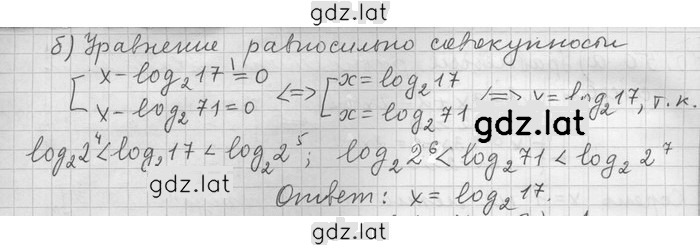 gdz.lat
б) Уравнение равносильно совокупности
[ x - log₂17 = 0 <=> [ x = log₂17
[ x - log₂71 = 0 [ x = log₂71 => x = log₂17, т.к.
gdz.lat
log₂2⁴ < log₂17 < log₂2⁵; log₂2⁶ < log₂71 < log₂2⁷
gdz.lat
Ответ: x = log₂17.
gdz.lat